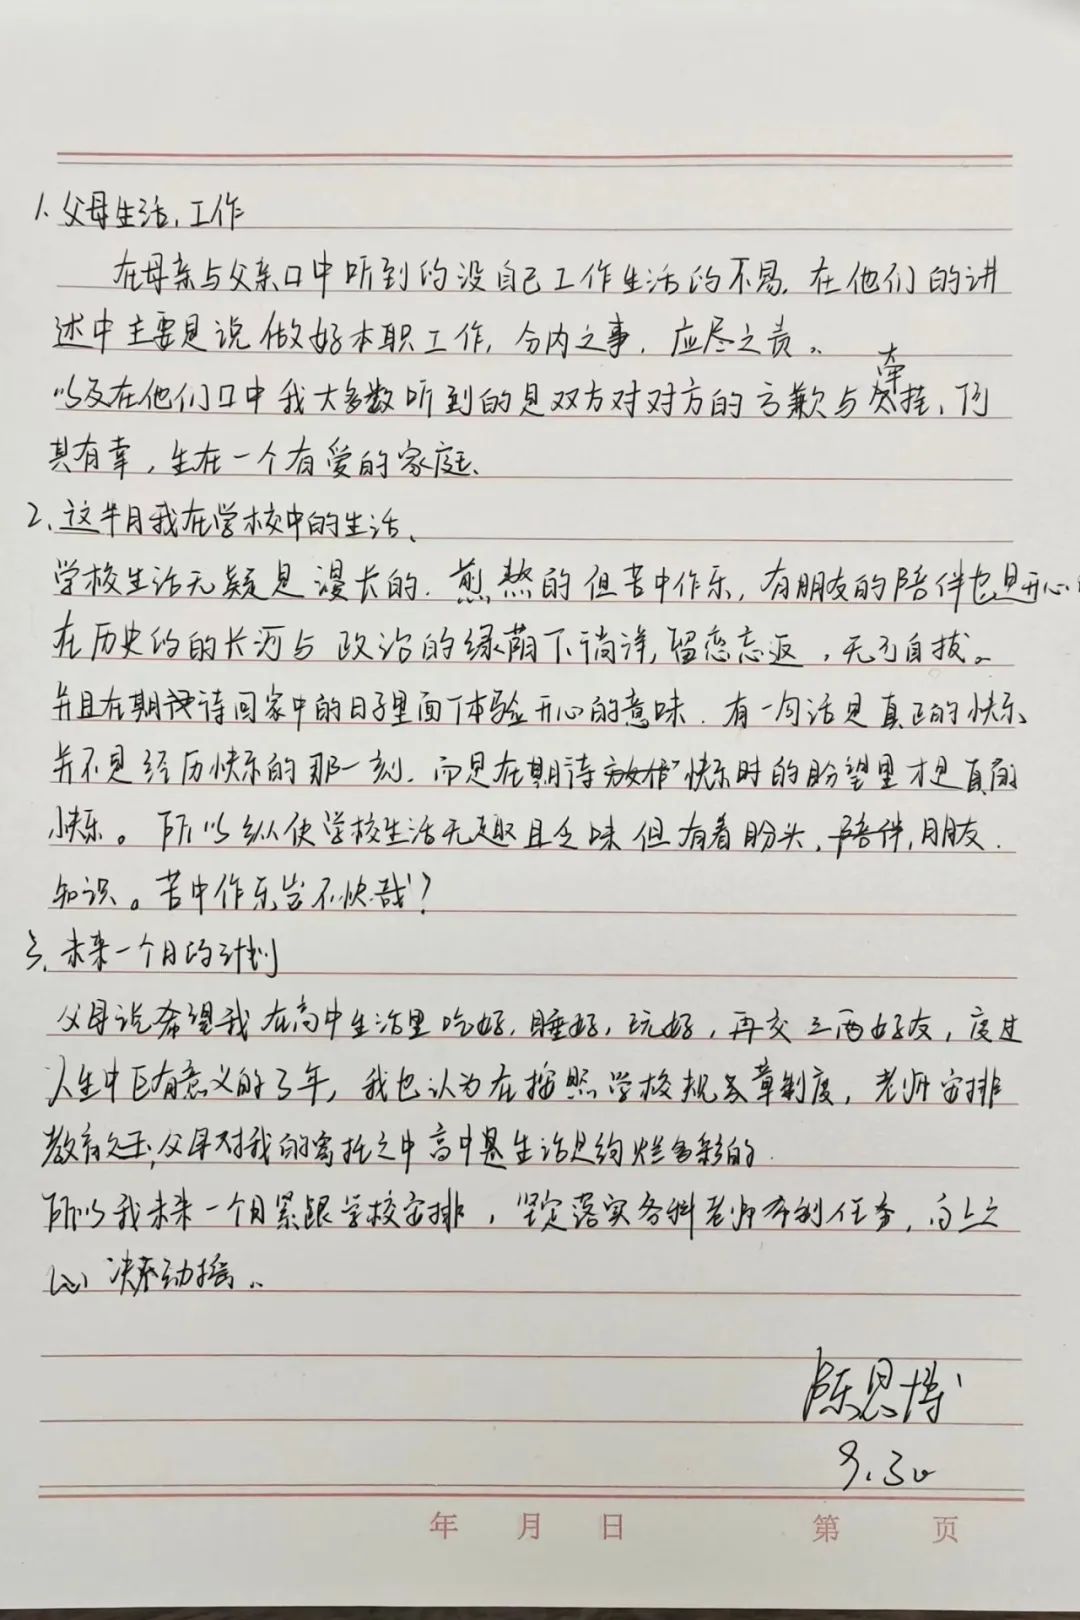 1、父母生活、工作
在母亲与父亲口中听到的没自己工作生活的不易，在他们的讲
述中主要是说做好本职工作，分内之事，应尽之责。
以及在他们口中我大多数听到的是双方对对方的亏歉与牵挂、何
其有幸，生在一个有爱的家庭、
2、这半月我在学校中的生活、
学校生活无疑是漫长的．煎熬的但苦中作乐，有朋友的陪伴也是开心的
在历史的长河与政治的绿荫下徜徉，留恋忘返，无可自拔。
并且在期待回家中的日子里面体验开心的意味．有一句话是真正的快乐
并不是经历快乐的那一刻．而是在期待快乐时的盼望里才是真的
快乐。所以纵使学校生活无趣且乏味但有着盼头、陪伴，朋友．
知识。苦中作乐岂不快哉？
3、未来一个月的计划
父母说希望我在高中生活里吃好，睡好，玩好，再交三两好友，度过
人生中有意义的3年，我也认为在按照学校规章制度，老师安排
教育，父母对我的寄托之中高中生活是绚烂多彩的．
所以我未来一个月紧跟学校安排，坚定落实各科老师布制任务，向上之
心决不动摇。
陈思博
9.30
年 月 日 第 页